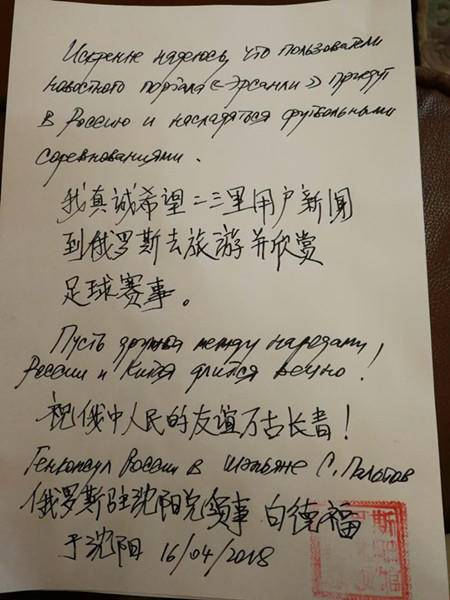 Искренне надеюсь, что пользователи
новостного портала «Эрсанли» приедут
в Россию и насладятся футбольными
соревнованиями.
我真诚希望二三里用户新闻
到俄罗斯去旅游并欣赏
足球赛事。
Пусть дружба между народами
России и Китая длится вечно!
祝俄中人民的友谊万古长青!
Генконсул России в Шэньяне С.
俄罗斯驻沈阳总领事 白德福
于沈阳 16/04/2018